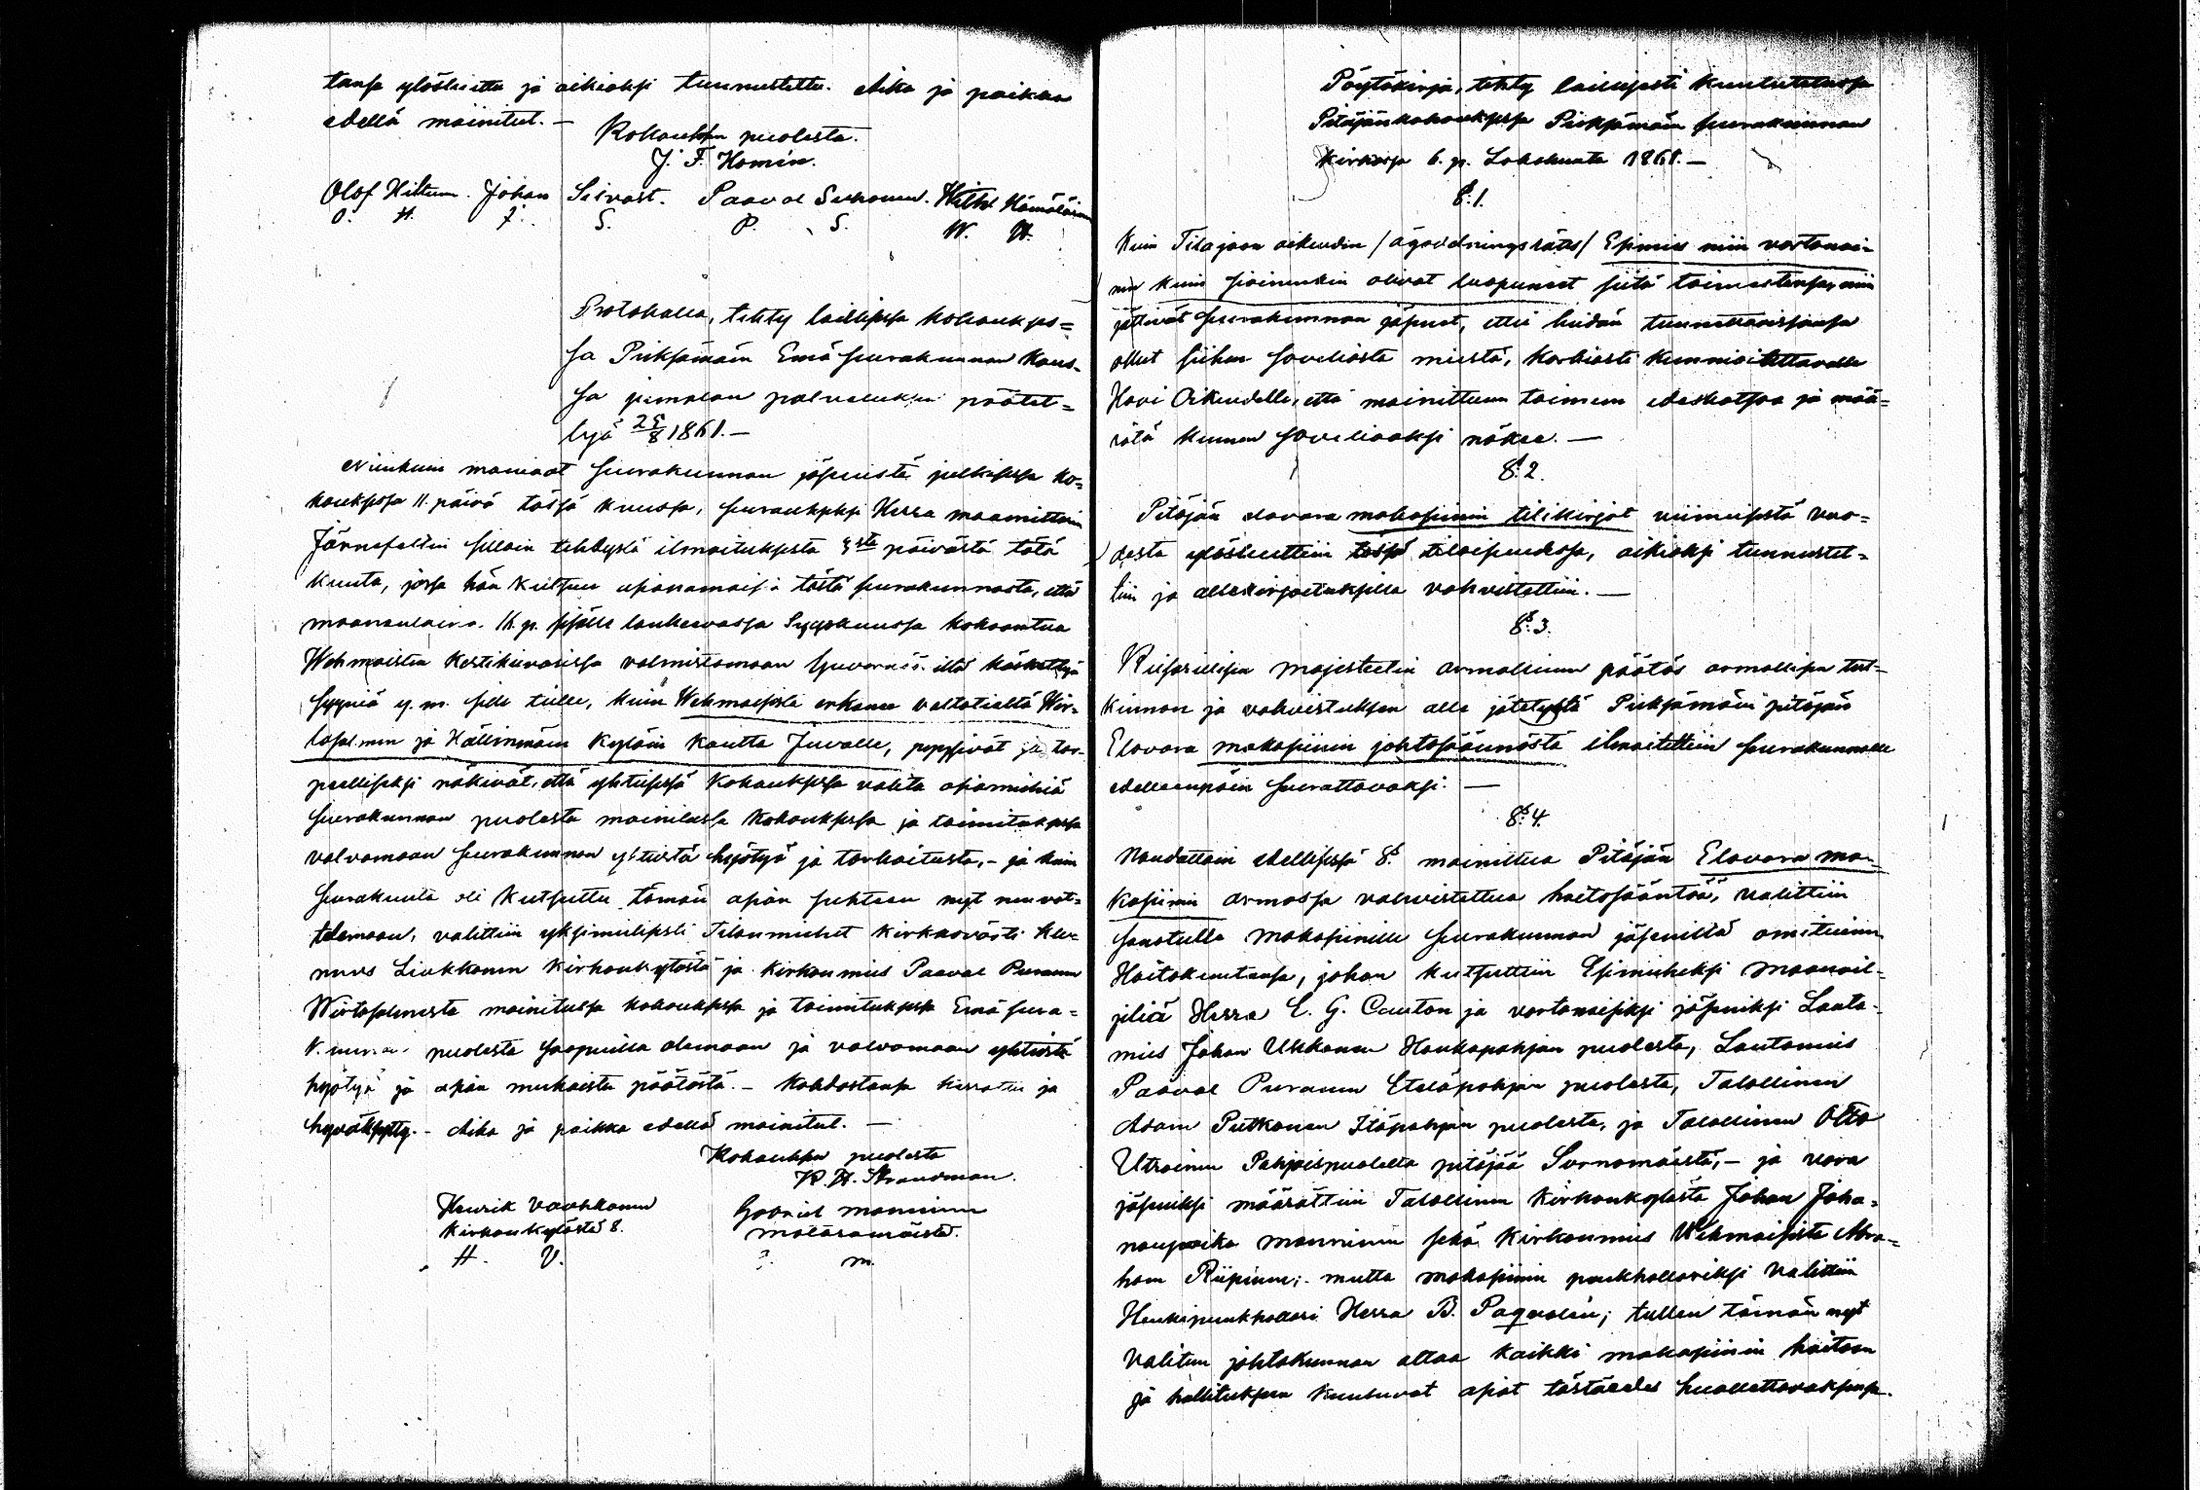 tansa ylösluettu ja oikiaksi tunnustettu. Aika ja paikka
edellä mainitut. —
Kokouksen puolesta.
J. F. Homén.
Olof Hiltunen. Johan Silvast. Paavol Surhonen. Wilhl Hämäläinen
O. H. J. S. P. S. W. H.
Protokolla, tehty laillisessa kokoukses=
sa Pieksämäin Emä seurakunnan kans=
sa jumalan palveluksen päätet=
tyä 25/8 1861. —
Niinkuin moniaat seurakunnan jäsenistä julkisessa ko=
kouksessa 11. päivä tässä kuussa, seurauksesta Herra maamittarin
Järnefeltin silloin tehdystä ilmoituksesta 3sta päivästä tätä
kuuta, jossa hän kutsuu asianomaisia tästä seurakunnasta, että
maanantaina 16. p. sisälle lankeevassa Syyskuussa kokoontua
Wehmaisten Kestikievarissa valmistamaan Guvernöriltä käskettyä
syyniä y. m. sille tielle, kuin Wehmaisista erkanee valtatieltä Wir=
tasalmen ja Hällinmäen kyläin kautta Juvalle, pyysivät ja tar=
peelliseksi näkivät, että yhteisessä kokouksessa valita asiamiehiä
seurakunnan puolesta mainitussa kokouksessa ja toimituksessa
valvomaan seurakunnan yhteistä hyötyä ja tarkoitusta, — ja kuin
seurakunta oli kutsuttu tämän asian suhteen nyt neuvot=
telemaan, valittiin yksimielisesti Tilanmiehet kirkkoväärti
Liukkonen Kirkonkylästä ja kirkonmies Paavol Puranen
Wirtasalmesta mainitussa kokouksessa ja toimituksessa Emä seura=
kunnan puolesta saapuilla olemaan ja valvomaan yhteistä
hyötyä ja asian mukaista päätöstä. — Kohdastansa luettu ja
hyväksytty. — Aika ja paikka edellä mainitut. —
Kokouksen puolesta
K. H. Strandman.
Henrik Vauhkonen Gabriel Manninen
Kirkonkylästä 8. Maläsamäistä.
H. V. M.
Pöytäkirja, tehty laillisesti kuulutetussa
Pitäjänkokouksessa Pieksämäin seurakunnan
kirkossa 6. p. Lokakuuta 1861. —
§. 1.
Kuin Tilajaon oikeuden /ägodelningsrätts/ Esimies niin varanai=
nen kuin sioinenkin olivat luopuneet siitä toimestansa, niin
jättivät seurakunnan jäsenet, ettei heidän tunnettavissansa
ollut siihen soveliasta miestä, korkiasti kunnioitettavalle
Hovi Oikeudelle, että mainittuun toimeen edeskatsoa ja mää=
rätä kunnen soveliaaksi näkee. —
§. 2.
Pitäjän elovara makasiinin tilikirjat viimeisestä vuo=
desta ylösluettiin tässä tilaisuudessa, oikiaksi tunnustet=
tiin ja allekirjoituksilla vahvistettiin. —
§. 3.
Keisarillisen Majesteetin armollinen päätös armollisen tut=
kinnon ja vahvistuksen alle jätetystä Pieksämäin pitäjän
Elovara makasiinin johtosäännöstä ilmoitettiin seurakunnalle
edelleenpäin seurattavaksi. —
§. 4.
Noudattain edellisessä §. mainittua Pitäjän Elovara ma=
kasiinin armossa vahvistettua hoitosääntöä, valittiin
sanotulle makasiinille seurakunnan jäseniltä omituinen
Hoitokuntansa, johon kutsuttiin Esimieheksi maanvil=
jeliä Herra E. G. Canton ja vartonaisiksi jäseniksi Lauta=
mies Johan Ukkonen Haukapohjan puolesta, Lautamies
Paavol Puranen Eteläpohjan puolesta, Talollinen
Adam Putkonen Itäpohjan puolesta, ja Talollinen Otto
Utriainen Pohjoispuolelta pitäjää Surnumäestä, — ja vara
jäseniksi määrättiin Talollinen Kirkonkylästä Johan Joha=
nanpoika Manninen sekä Kirkonmies Wehmaisista Abra=
ham Riipinen; mutta makasiinin puukhollariksi valittiin
Henkipuukhollari Herra B. Paqvalén; tullen tämän nyt
valitun johtokunnan ottaa kaikki makasiinin hoitoon
ja hallitukseen kuuluvat asiat tästäedes huolettavaksensa.